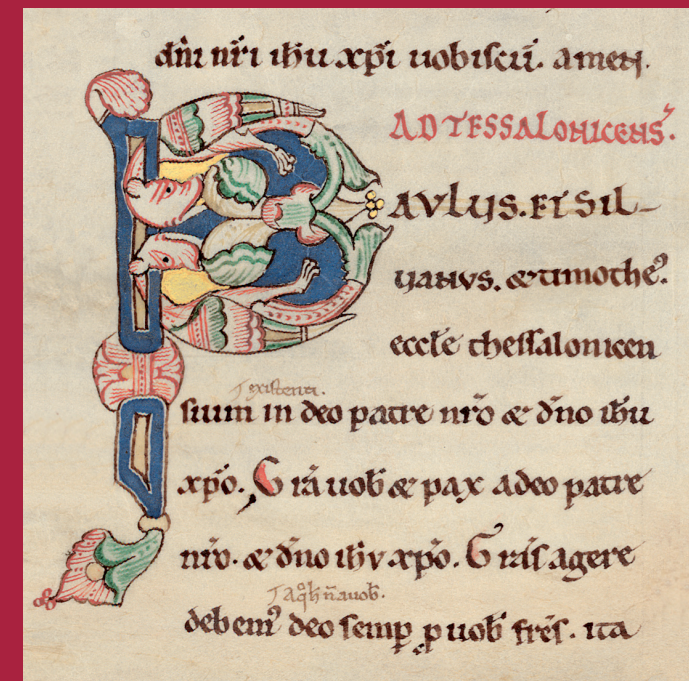 dn̄i nr̄i ih̄u xp̄i uobiscū. amen.
AD TESSALONICENS᷒.
PAVLUS. ET SIL-
UANUS. & timothe᷒.
eccle̅ thessalonicen
⁊ existenti.
sium in deo patre nr̄o & dn̄o ih̄u
xp̄o. Gr̄a uob̄ & pax a deo patre
nr̄o. & dn̄o ih̄v xp̄o. Gr̄as agere
debem᷒ deo semp̲ p̲ uob̄ fr̄es. ita